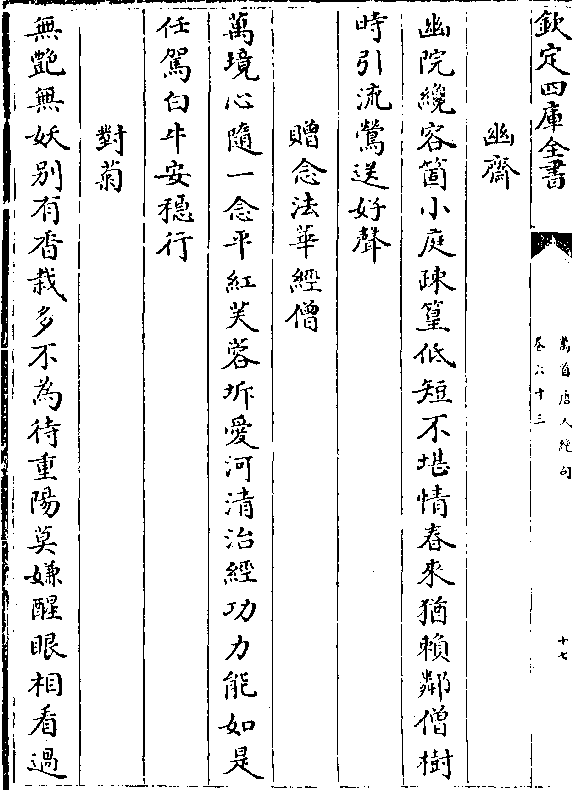 欽定四庫全書
萬首唐人絶句
卷六十三
十七
幽齋
幽院纔容箇小庭疎篁低短不堪情春來猶賴鄰僧樹
時引流鶯送好聲
贈念法華經僧
萬境心隨一念平紅芙蓉坼愛河清治經功力能如是
任駕白牛安穩行
對菊
無艷無妖别有香栽多不為待重陽莫嫌醒眼相看過